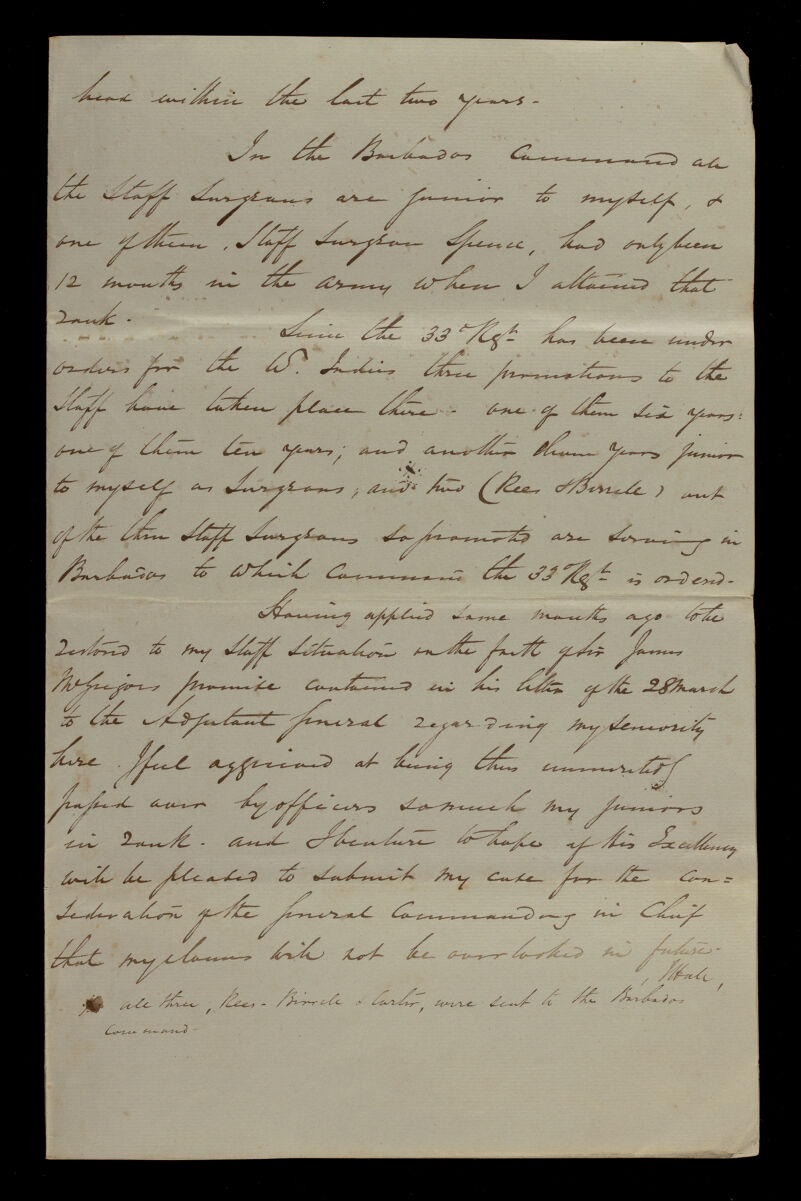 head within the last two years -
In the Barbados Command all
the Staff Surgeons are junior to myself, &
one of them, Staff Surgeon Spence, had only been
12 months in the army when I attained that
rank -
Since the 33d Regt has been under
orders for the W. Indies three promotions to the
Staff have taken place there - one of them six years:
one of them ten years; and another eleven years junior
to myself as Surgeons; and two (Rees & Birrell) out
of the three Staff Surgeons so promoted are serving in
Barbados to which Command the 33d Regt is ordered -
Having applied some months ago to be
restored to my Staff situation on the faith of Sir James
McGrigors promise contained in his letter of the 28 March
to the Adjutant General regarding my seniority
here. I feel aggrieved at being thus unmeritedly
passed over by officers so much my juniors
in rank - and I venture to hope if His Excellency
will be pleased to submit my case for the con=
sideration of the General Commanding in Chief
that my claims will not be overlooked in future -
J Hall,
all three, Rees - Birrell & Carter, were sent to the Barbados
command -